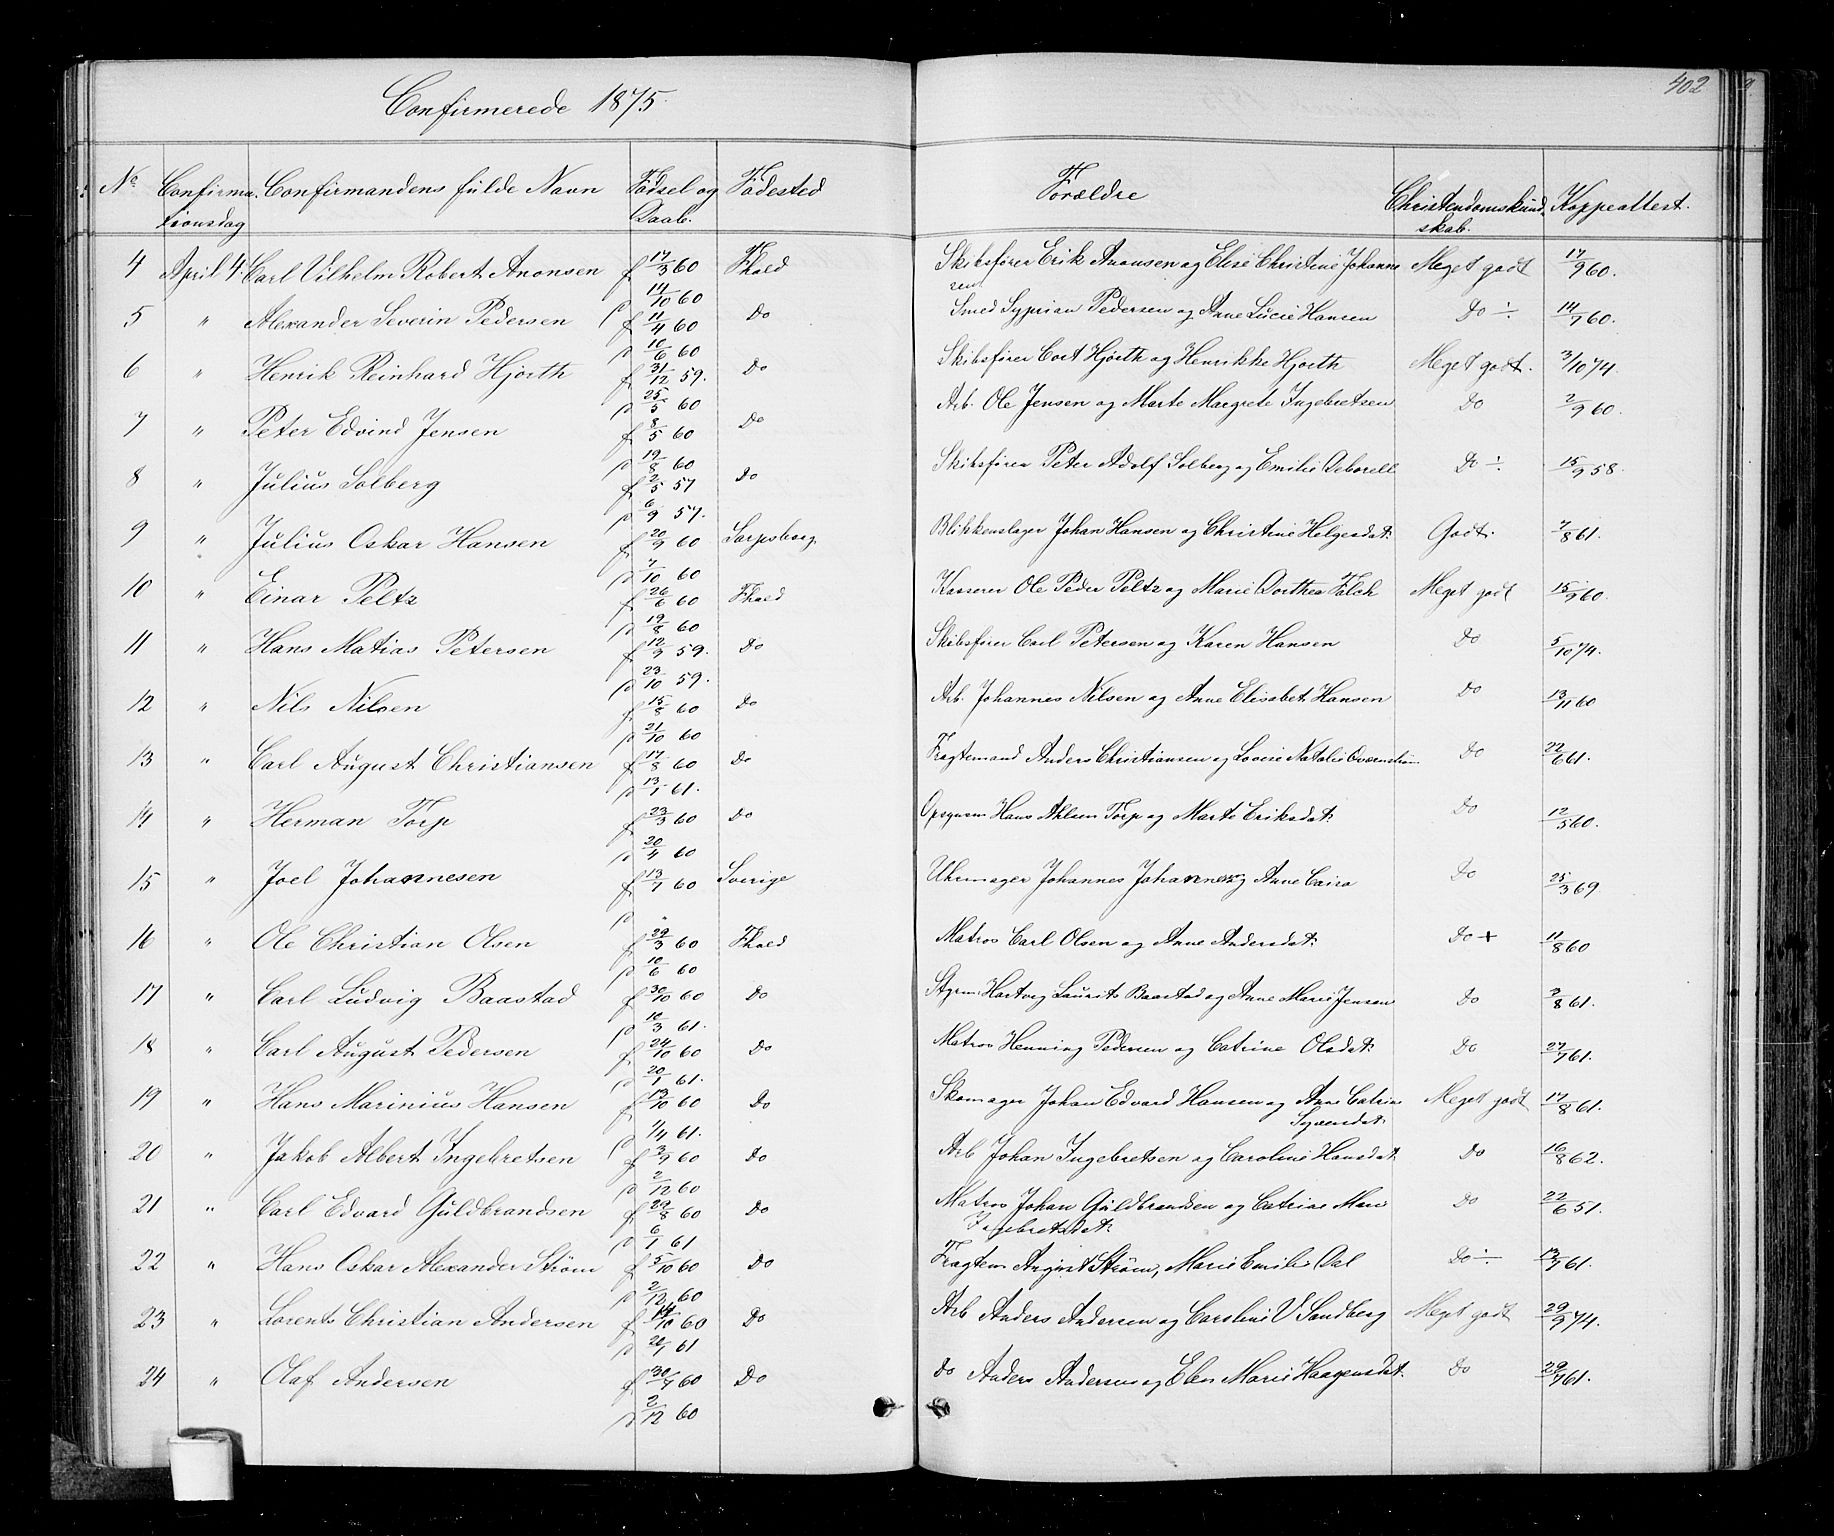 Confirmerede 1875.
402
No Confirma- Confirmandens fulde Navn Fødsel og Fødested Forældre Christendomskund- Koppeattest.
tionsdag Daab. skab.
4 April 4. Carl Vilhelm Robert Aronsen f 17/3 60 Fhald Skibsfører Erik Aronsen og Elise Christine Johanne Meget godt 17/9 60.
sen
14/10 60
5 " Alexander Severin Pedersen f 11/4 60 Do Smed Syprian Pedersen og Anne Lucie Hansen Do ÷ 14/7 60.
d 10/6 60
6 " Henrik Reinhard Hjorth f 31/12 59. Do Skibsfører Cort Hjorth og Henrikke Hjorth Meget godt. 3/10 74.
d 25/5 60
7 " Peter Edvind Jensen f 8/5 60 Do Arb. Ole Jensen og Marte Margrete Ingebretsen Do 2/9 60.
d 19/8 60
8 " Julius Solberg f 2/5 57 Do Skibsfører Peter Adolf Solberg og Emilie Do ÷ 15/9 58.
d 6/9 57.
9 " Julius Oskar Hansen f 20/9 60 Sarpsborg Blikkenslager Johan Hansen og Christine Helgesdat. Godt. 7/8 61.
d 7/10 60
10 " Einar Peltz f 26/6 60 Fhald Kasserer Ole Peder Peltz og Marie Dorthea Falch Meget godt 15/9 60.
d 19/8 60
11 " Hans Matias Petersen f 12/9 59. Do Skibsfører Carl Petersen og Karen Hansen Do 5/10 74.
d 23/10 59.
12 " Nils Nilsen f 15/8 60 Do Arb. Johannes Nilsen og Anne Elisabet Hansen Do 13/11 60
d 21/10 60
13 " Carl August Christiansen f 17/8 60 Do Fragtemand Anders Christiansen og Lovise Natalie Do 22/6 61.
d 13/1 61.
14 " Herman Torp f 23/3 60 Do Hans Ahlsen Torp og Marte Eriksdat. Do 12/5 60.
d 20/4 60
15 " Joel Johannesen f 13/7 60 Sverige Uhrmager Johannes Johannes og Anne Caisa Do 25/3 69.
d "
16 " Ole Christian Olsen f 29/3 60 Fhald Matros Carl Olsen og Anne Andersdat. Do + 11/8 60
d 10/6 60
17 " Carl Ludvig Baastad f 30/10 60 Do Styrm. Hartvig Laurits Baastad og Anne Marie Jensen Do 3/8 61.
d 10/3 61.
18 " Carl August Pedersen f 24/10 60 Do Matros Henning Pedersen og Catrine Olsdat. Do 27/7 61.
d 20/1 61.
19 " Hans Marinius Hansen f 13/10 60 Do Skomager Johan Edvard Hansen og Anne Catrine Meget godt 17/8 61.
Syversdat.
1/4 61.
20 " Jakob Albert Ingebretsen f 3/9 60 Do Arb Johan Ingebretsen og Caroline Hansdat. Do 16/8 62.
d 2/12 60
21 " Carl Edvard Guldbrandsen f 29/8 60 Do Matros Johan Guldbrandsen og Catrine Marie Do 22/6 51.
Ingebretsdat.
d 6/1 61
22 " Hans Oskar Alexander Strøm f 5/10 60 Do Fragtem August Strøm, Marie Emilie Dal Do ÷ 13/7 61.
d 2/12 60
23 " Lorents Christian Andersen f 14/10 60 Do Arb Anders Andersen og Caroline V Sandberg Meget godt 29/9 74.
d 20/1 61
24 " Olaf Andersen f 30/7 60 Do do Anders Andersen og Elen Marie Haagensdat. Do 29/7 61.
d 2/12 60